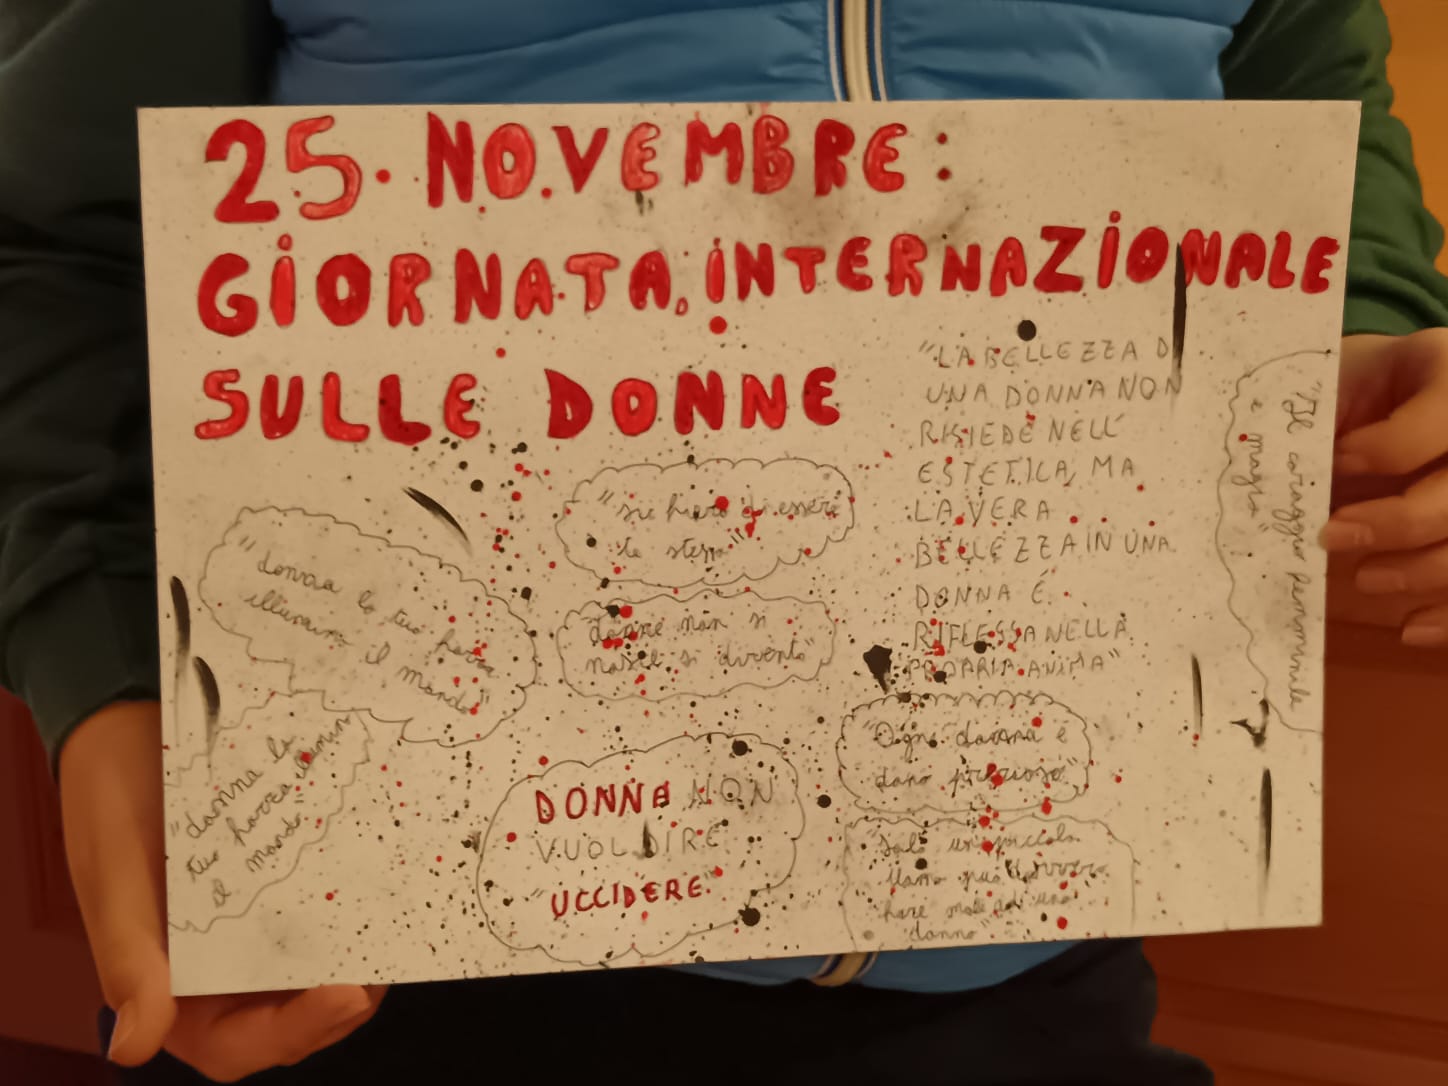 25. NOVEMBRE:
GIORNATA, INTERNAZIONALE
SULLE DONNE
"LA BELLEZZA D
UNA DONNA NON
RISIEDE NELL'
ESTETICA, MA
LA VERA
BELLEZZA IN UNA
DONNA É
RIFLESSA NELLA
PROPRIA ANIMA"
"Il coraggio femminile
è magia"
"sii fiero di essere
te stessa"
"donna la tua forza
illumina il mondo"
"donne non si
nasce si diventa"
"donna la
tua forza illumina
il mondo"
DONNA NON
VUOL DIRE
"UCCIDERE"
"Ogni donna è
dono prezioso"
"Solo un piccolo
uomo può
fare male ad una
donna"